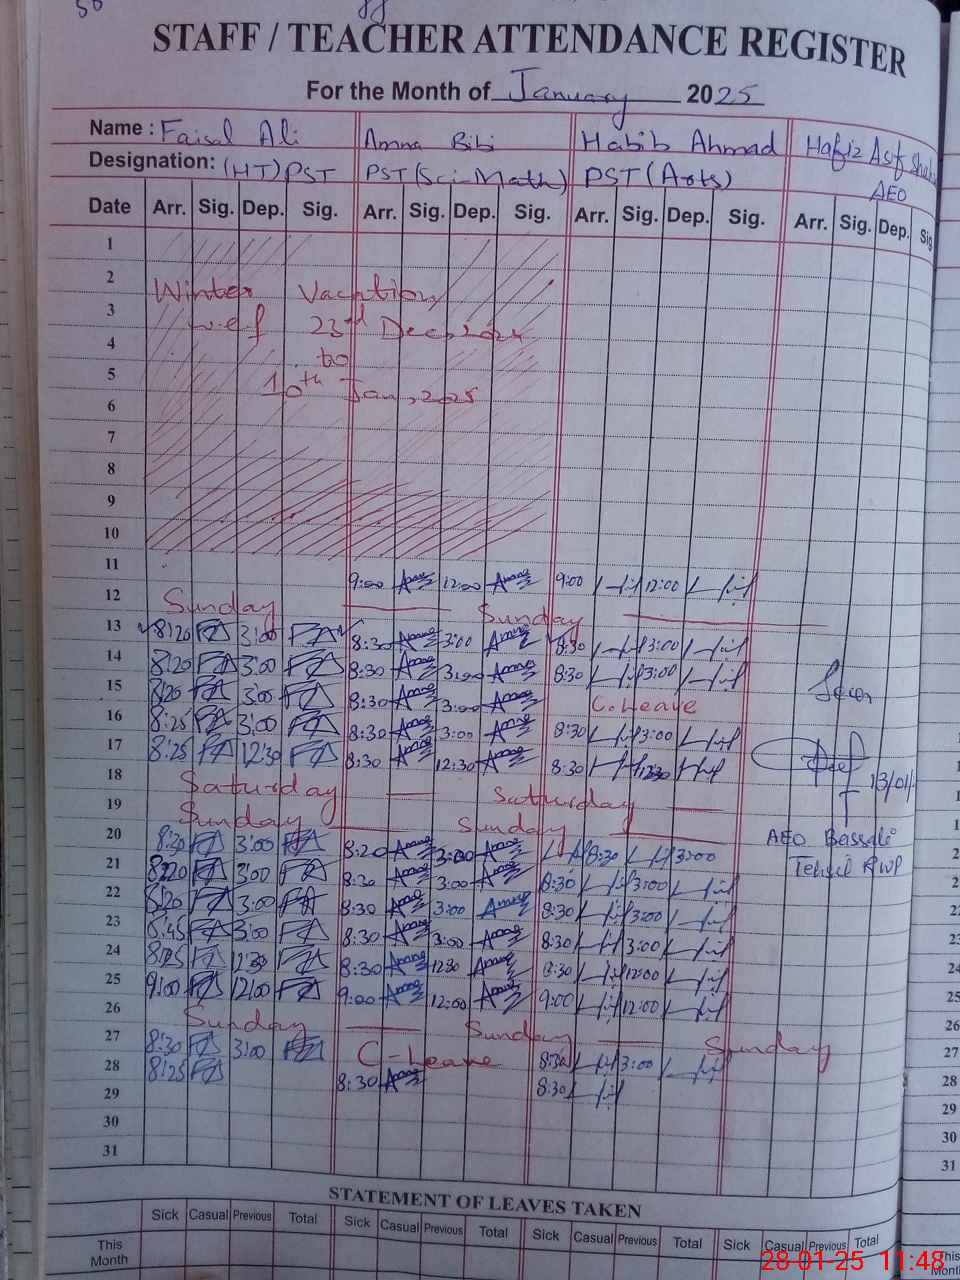 50
STAFF / TEACHER ATTENDANCE REGISTER
For the Month of January 2025
Name : Faisal Ali Amna Bibi Habib Ahmad Hafiz Asif
Designation: (HT) PST PST (Sci-Math) PST (Arts) AEO
Date Arr. Sig. Dep. Sig. Arr. Sig. Dep. Sig. Arr. Sig. Dep. Sig. Arr. Sig. Dep. Sig
1
2 Winter Vacation
3 w.e.f 23th Dec, 2024
4 to
5 10th Jan, 2025
6
7
8
9
10
11 9:00 Amna 12:00 Amna 9:00 12:00
12 Sunday Sunday
13 8:20 3:00 8:30 Amna 3:00 Amna 8:30 3:00
14 8:20 3:00 8:30 Amna 3:00 Amna 8:30 3:00
15 8:20 3:00 8:30 Amna 3:00 Amna C. Leave
16 8:25 3:00 8:30 Amna 3:00 Amna 8:30 3:00
17 8:25 12:30 8:30 Amna 12:30 Amna 8:30 12:30
13/01/
18 Saturday Saturday
19 Sunday Sunday
AEO Bassali
Tehsil RWP
20 8:30 3:00 8:20 Amna 3:00 Amna 8:30 3:00
21 8:20 3:00 8:30 Amna 3:00 Amna 8:30 3:00
22 8:20 3:00 8:30 Amna 3:00 Amna 8:30 3:00
23 8:45 3:00 8:30 Amna 3:00 Amna 8:30 3:00
24 8:25 12:30 8:30 Amna 12:30 Amna 8:30 12:00
25 9:00 12:00 9:00 Amna 12:00 Amna 9:00 12:00
26 Sunday Sunday Sunday
27 8:30 3:00 C-Leave 8:30 3:00
28 8:25 8:30 Amna 8:30
29
30
31
STATEMENT OF LEAVES TAKEN
Sick Casual Previous Total Sick Casual Previous Total Sick Casual Previous Total Sick Casual Previous Total
This Month
This Month
23
24
25
26
27
28
29
30
31
28-01-25 11:48